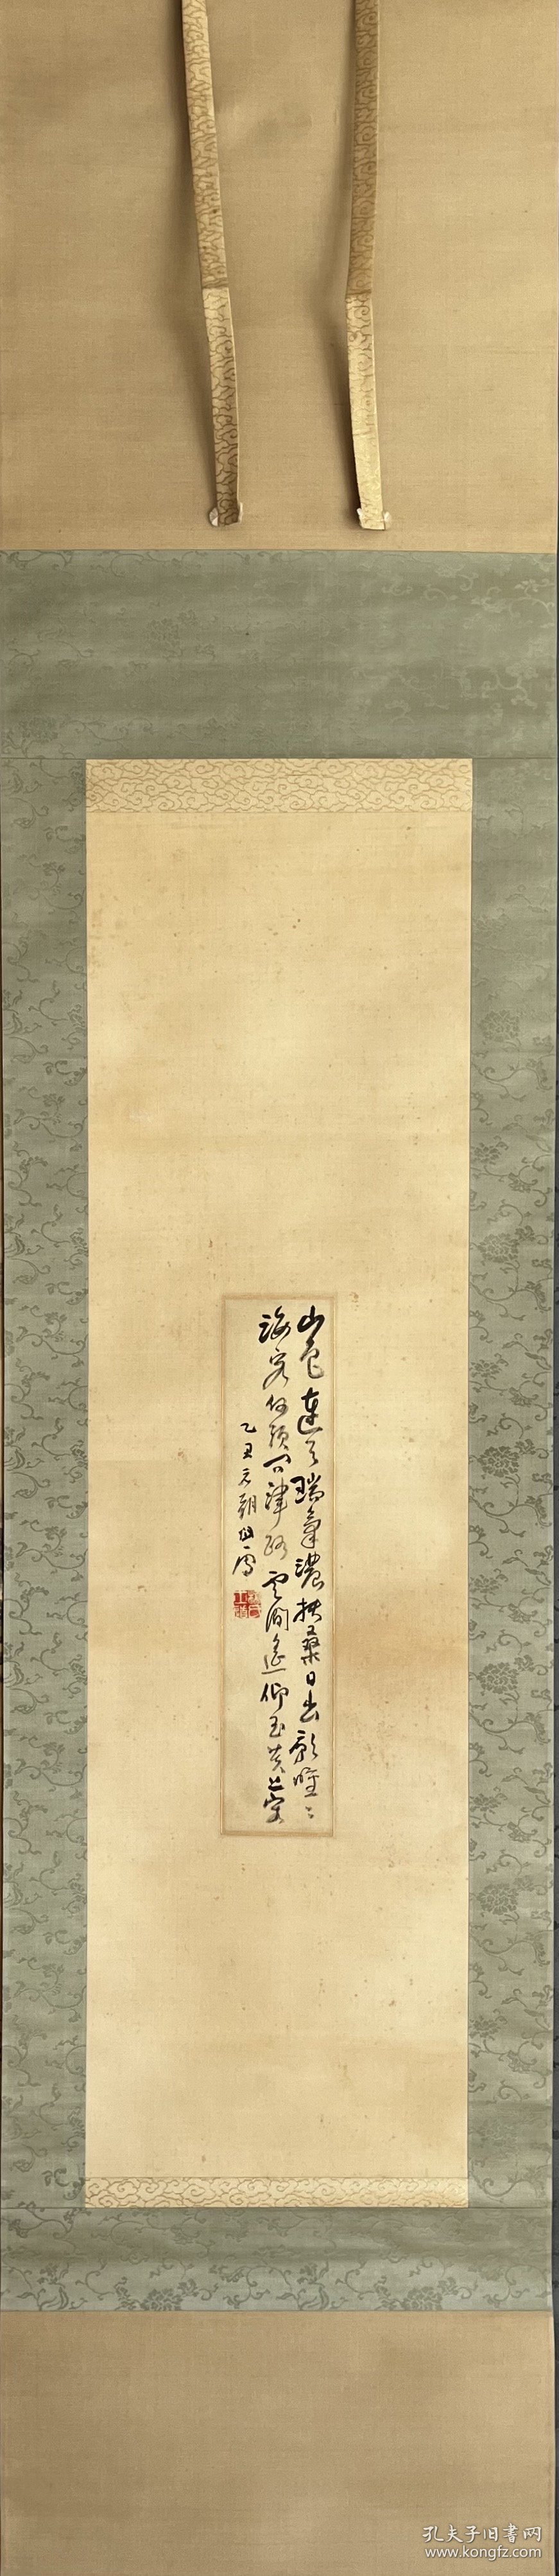 山色連天瑞氣濃扶桑日出彩曈〻
海客何須問津路雲間遙仰玉芙蓉
乙丑元朝
孔夫子旧书网
www.kongfz.com